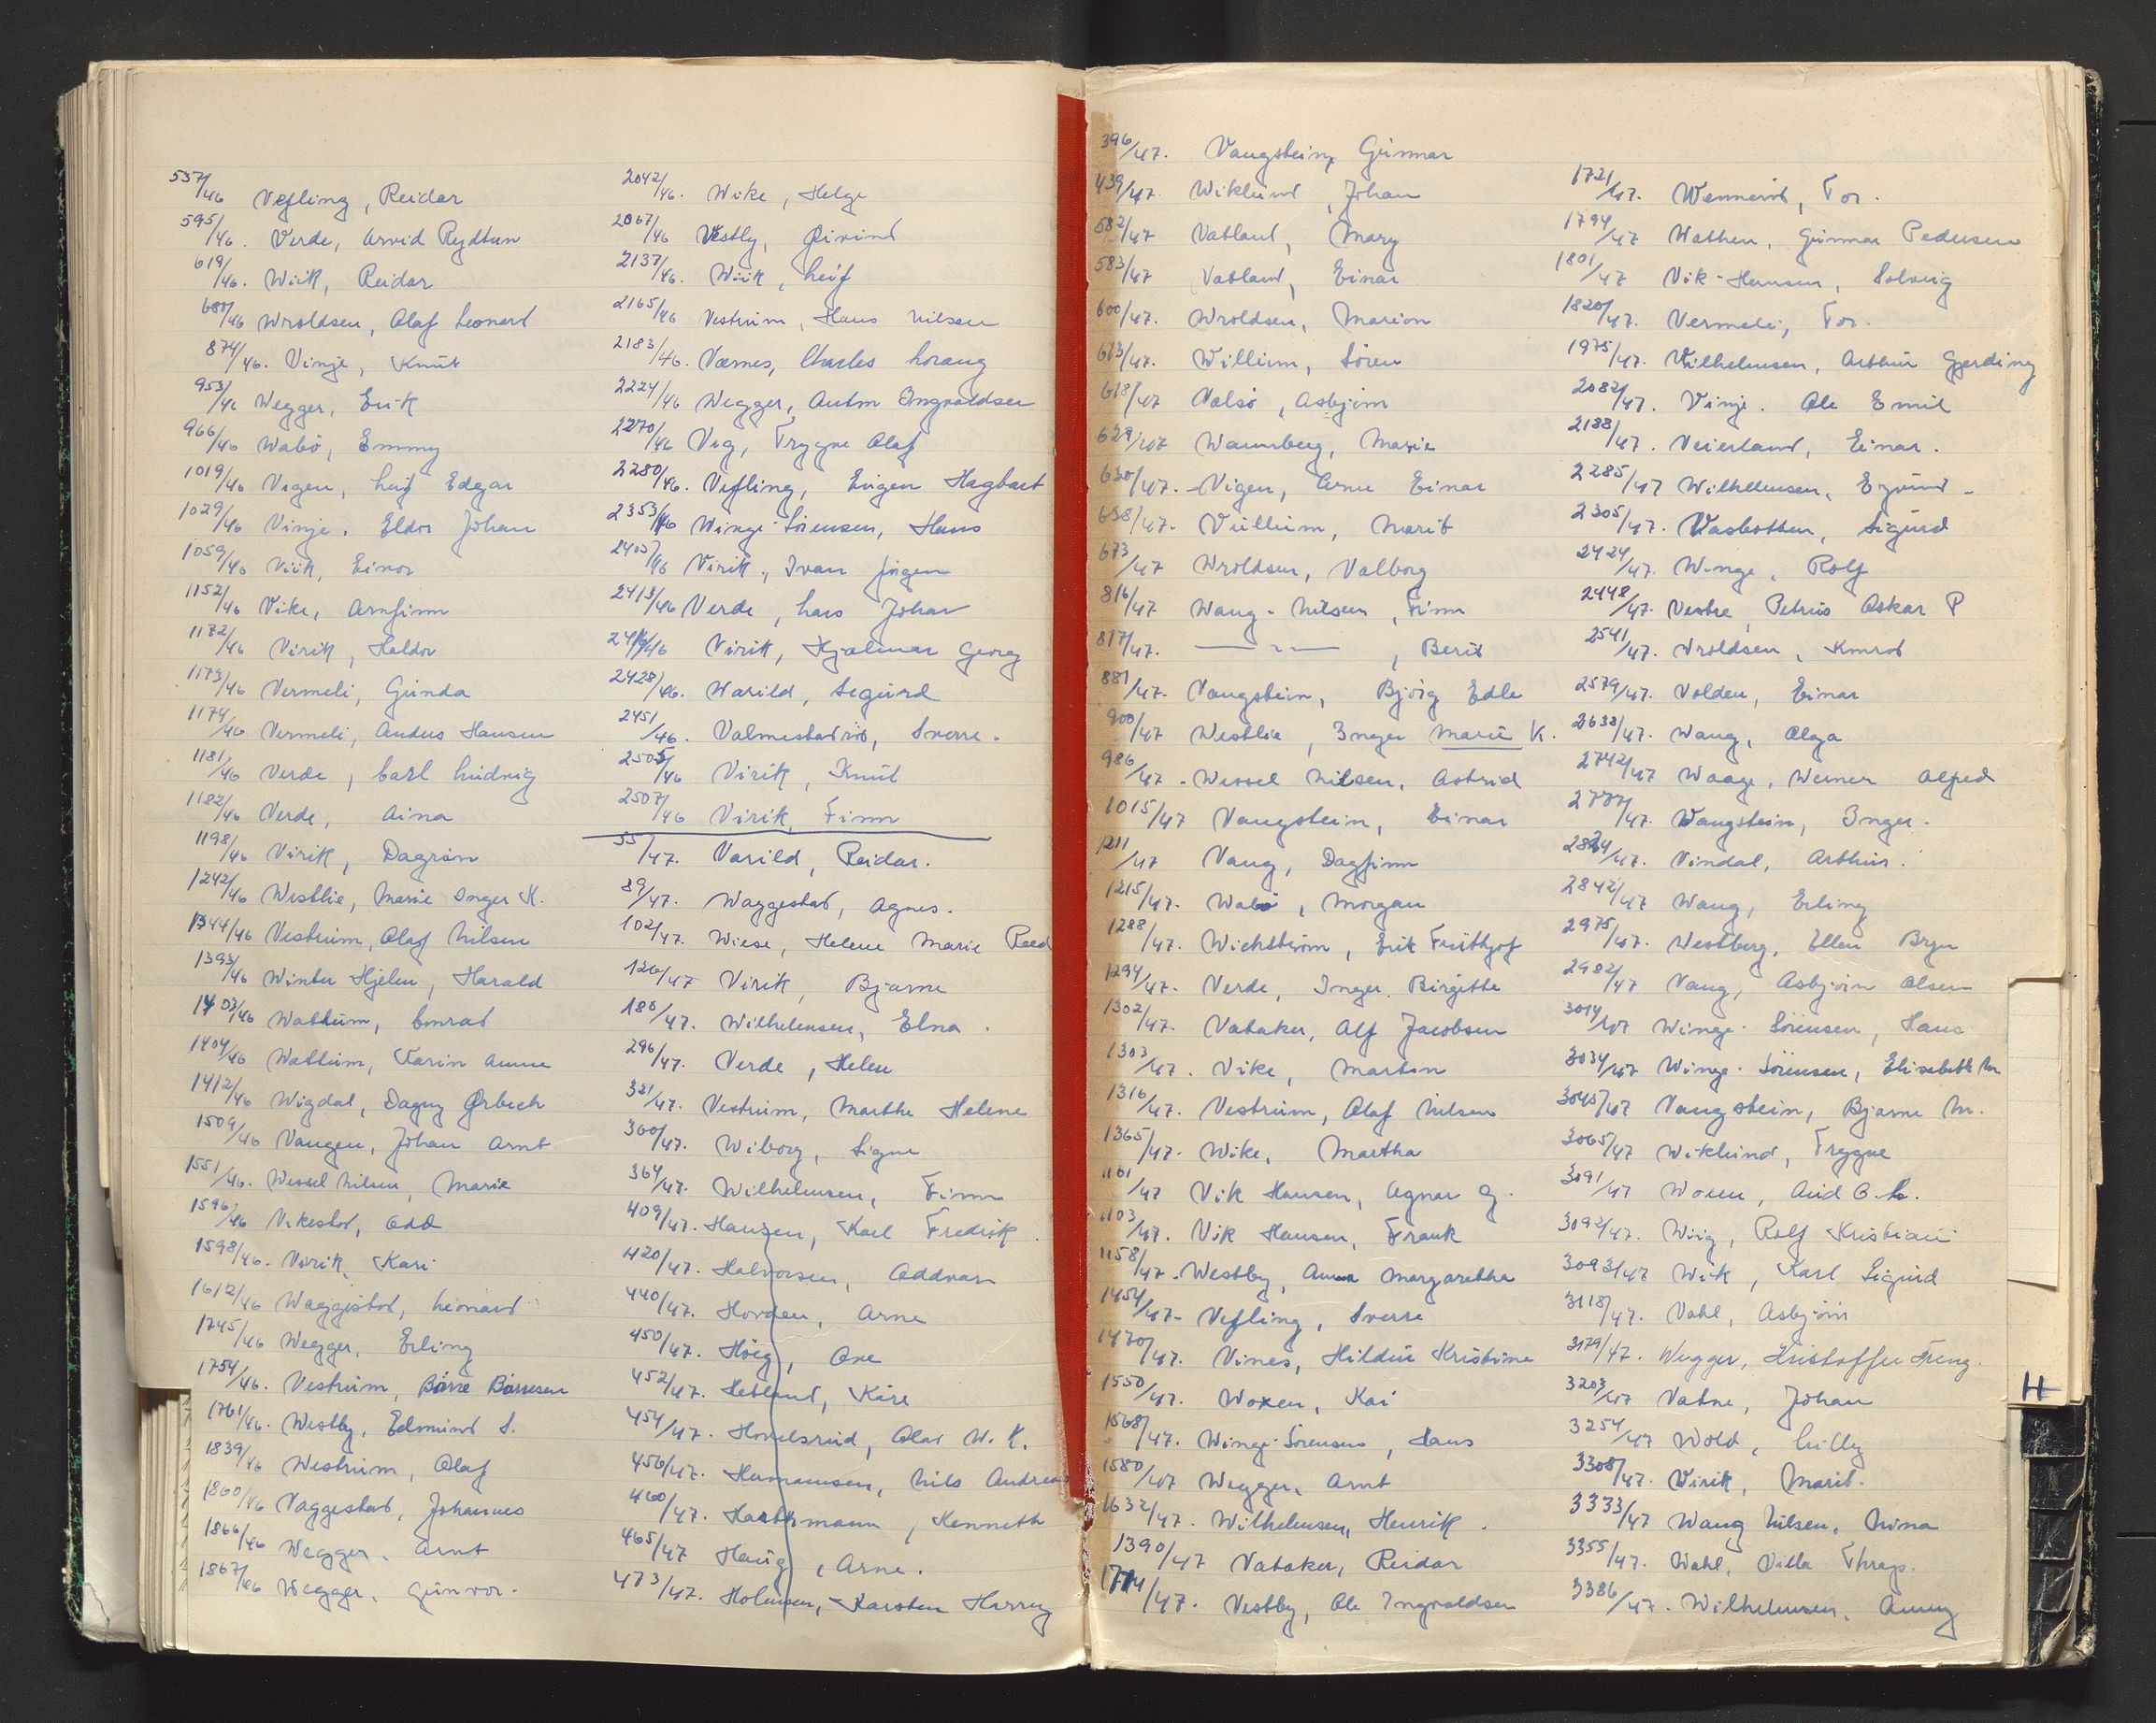 537/46 Vefling, Reidar
595/46. Verde, Arvid Rydtun
619/46. Wiik, Reidar
681/46 Wroldsen, Olaf Leonard
874/46. Vinje, Knut
953/46 Wegger, Erik
966/46 Wabö, Emmy
1019/46 Vigen, Leif Edgar
1029/46 Vinje, Eldor Johan
1059/46 Viik, Einar
1152/46 Vike, Arnfinn
1172/46 Virik, Haldor
1173/46 Vermeli, Gunda
1174/46 Vermeli, Anders Hansen
1181/46 Verde, Carl Ludvig
1182/46 Verde, Aina
1198/46 Virik, Dagrun
1242/46 Westlie, Marie Inger K.
1344/46 Vestrum, Olaf Nilsen
1393/46 Winter Hjelm, Harald
1403/46 Wattum, Conrad
1404/46 Wattum, Karin Anne
1412/46 Wigdal, Dagny Ørbech
1509/46 Vangen, Johan Arnt
1551/46. Wessel Nilsen, Marie
1596/46 Vikestad, Odd
1598/46. Virik, Kari
1612/46 Waggestad, Leonard
1745/46 Wegger, Erling
1754/46. Vestrum, Börre Börresen
1761/46. Westby, Edmund S.
1839/46 Westrum, Olaf
1860/46 Vaggestad, Johannes
1866/46 Wegger, Arnt
1867/46 Wegger, Gunvor.
2042/46. Wike, Helge
2067/46 Vestly, Øivind
2137/46. Wiik, Leif
2165/46 Vestrum, Hans Nilsen
2183/46. Værnes, Charles Lorang
2224/46 Wegger, Anton Ingvaldsen
2270/46 Veg, Trygve Olaf
2280/46. Vefling, Eugen Hagbart
2353/46 Winge-Sörensen, Hans
2405/46 Virik, Ivan Jörgen
2413/46 Verde, Lars Johan
2414/46 Virik, Hjalmar Georg
2428/46. Warild, Sigurd
2451/46. Valmestadrød, Sverre.
2505/46 Virik, Knut
2507/46 Virik, Finn
55/47. Varild, Reidar.
89/47. Waggestad, Agnes.
102/47. Wiese, Helene Marie Reed
126/47 Virik, Bjarne
186/47. Wilhelmsen, Elna.
296/47. Verde, Helen
321/47. Vestrum, Marthe Helene
360/47. Wiborg, Signe
364/47. Wilhelmsen, Finn
409/47. Hansen, Karl Fredrik.
420/47. Halvorsen, Oddvar
440/47. Hovden, Arne
450/47. Höeg, Ove
452/47. Hetland, Kåre
454/47. Hovelsrud, Olav W. K.
456/47. Hermansen, Nils Andreas
460/47. Hartmann, Kenneth
465/47 Haug, Arne.
473/47. Holmsen, Karsten Harry
396/47. Vaugstein, Gunnar
439/47 Wiklund, Johan
582/47 Vatland, Mary
583/47 Vatland, Einar
600/47. Wroldsen, Marion
613/47. Willum, Sören
618/47 Valsö, Asbjörn
629/47 Warmberg, Marie
630/47. Vigen, Arne Einar
638/47. Villum, Marit
673/47 Wroldsen, Valborg
816/47 Wang-Nilsen, Finn
817/47. —"—, Berit
881/47. Vangstein, Bjørg Edle
900/47 Westlie, Inger Marie K.
986/47. Wessel Nilsen, Astrid
1015/47 Vangstein, Einar
1211/47 Vang, Dagfinn
1215/47. Wabö, Morgan
1288/47. Wichström, Erik Frithjof
1294/47. Verde, Inger Birgitte
1302/47. Vataker, Alf Jacobsen
1303/47. Vike, Marton
1316/47. Vestrum, Olaf Nilsen
1365/47. Wike, Martha
1161/47 Vik Hansen, Agnar G.
1103/47. Vik Hansen, Frank
1158/47. Westby, Anna Margarethe
1454/47. Vefling, Sverre
1470/47. Vines, Hildur Kristine
1550/47. Woxen, Kai
1568/47. Winge-Sörensen, Hans
1580/47 Wegger, Arnt
1632/47. Wilhelmsen, Henrik.
1390/47 Vataker, Reidar
1714/47. Vestby, Ole Ingvaldsen
1721/47. Wennerød, Tor.
1794/47 Hathen, Gunnar Pedersen
1801/47 Vik-Hansen, Solveig
1820/47. Vermeli, Tor.
1975/47. Wilhelmsen, Arthur Gjerding
2082/47. Vinje. Ole Emil
2188/47. Veierland, Einar.
2285/47 Wilhelmsen, Ejvind
2305/47. Vasbotten, Sigurd
2424/47. Winge, Rolf
2448/47. Vestre, Petrus Oskar P
2541/47. Wroldsen, Konrad
2579/47. Volden, Einar
2638/47. Wang, Olga
2742/47 Waage, Werner Alfred
2777/47. Wangstein, Inger.
2824/47. Vindal, Arthur.
2842/47 Wang, Erling
2975/47. Westberg, Ellen Bryn
2982/47 Vang, Asbjørn Olsen
3014/47 Winge-Sörensen, Hans
3034/47 Winge-Sörensen, Elisabeth M.
3045/47 Vangstein, Bjarne M.
3065/47 Wiklund, Trygve
3091/47 Woxen, Arid O. L.
3092/47. Wiig, Rolf Kristian
3093/47 Wik, Karl Sigurd
3118/47. Vahl, Asbjörn
3179/47. Wegger, Kristoffer Treng.
3203/47 Vatne, Johan
3254/47 Wold, Lilly
3308/47. Virik, Marit.
3333/47 Wang Nilsen, Nina
3355/47. Wahl, Villa Thrap.
3386/47. Wilhelmsen, Anny
H